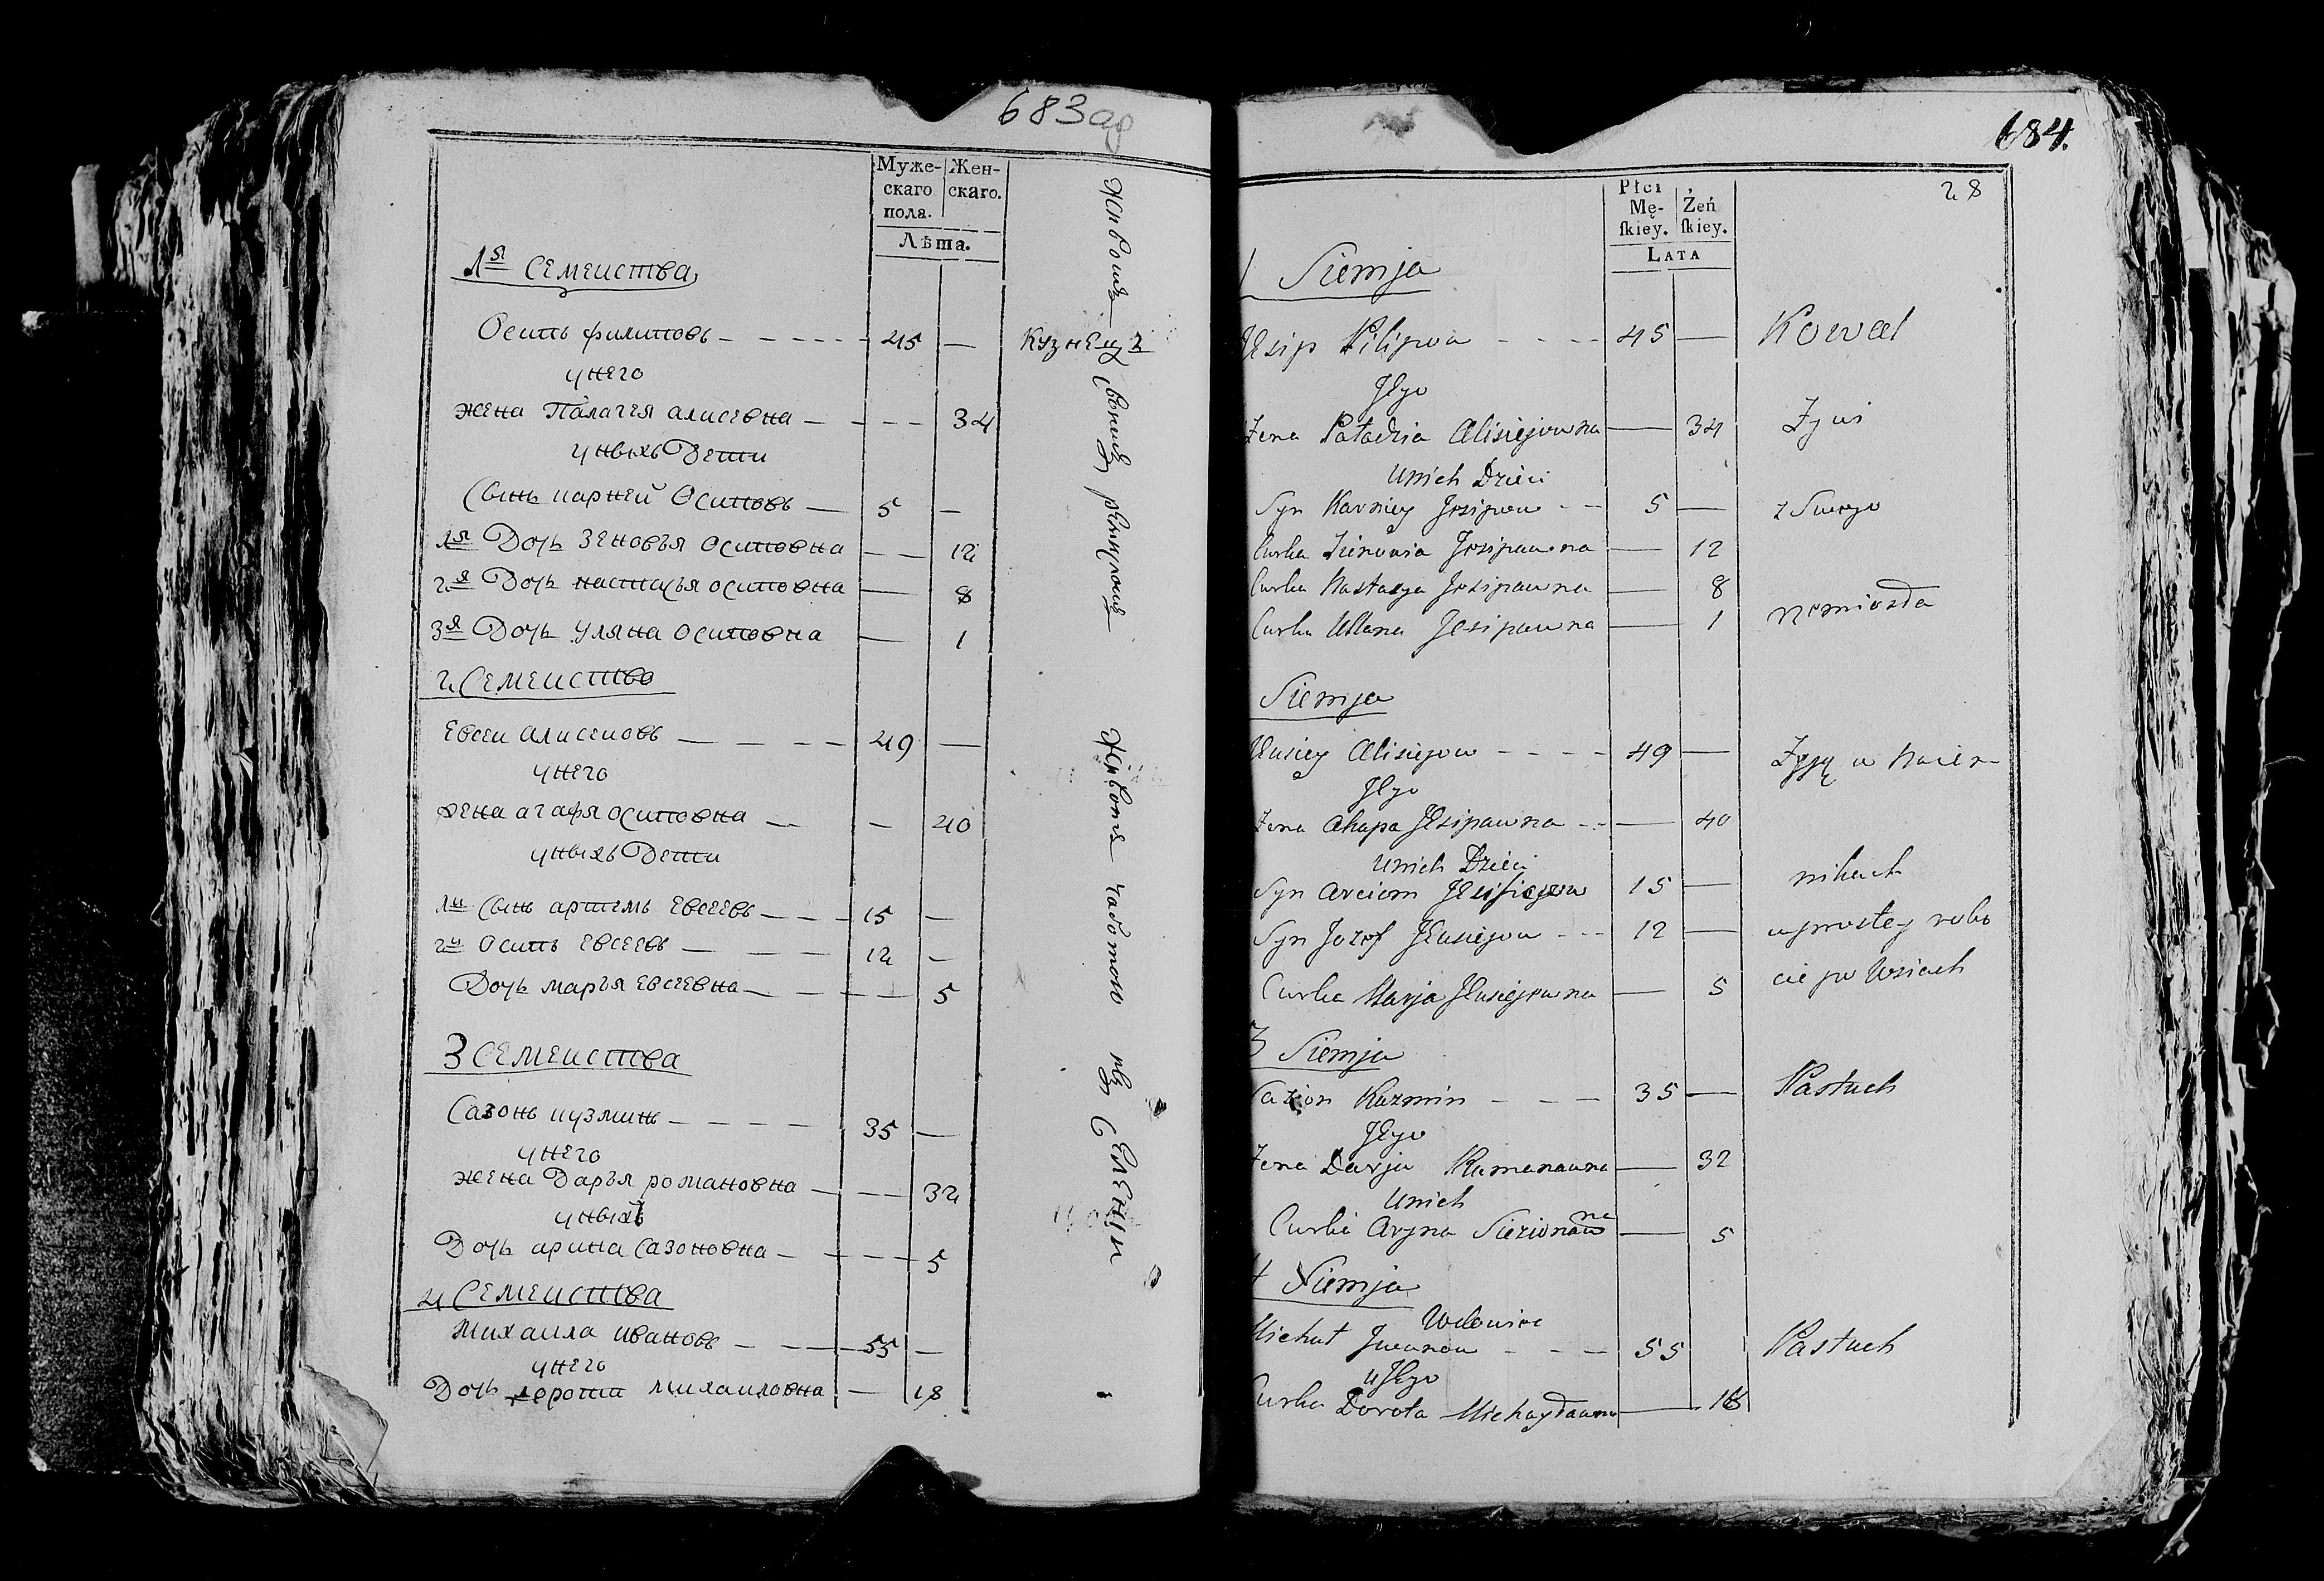 683 об
Муже-
скаго
пола.
Жен-
скаго.
Лѣта.
1я Семеиства
Осипъ филиповъ 45 — Кузнецъ
унего
жена Палагея алисевна 34
унвıхъ Дети
Сынъ карней Осиповъ — 5 —
1я Дочь Зеновъя осиповна — 12
2я Дочь настасья осиповна — 8
3я Дочь уляна осиповна — 1
2 Семеиство
Евсеи алисеиовъ 49 —
унего
жена агафя осиповна — 40
унвıхъ Дети
1и Сынъ артемъ Евсеевъ 15 —
2и осипъ Евсеевъ 12 —
Дочь маръя Евсевна 5
3 Семеиства
Сазонъ кузминъ 35 —
унего
жена Даръя романовна 32
унвıхъ
Дочь арина Сазоновна 5
4 Семеиства
Михаила ивановъ 55 —
унего
Дочь михаиловна — 18
Живетъ своимъ ремесломъ
Животъ работою въ Селенıи
684.
28
Płci
Mę-
ſkiey.
Żeń
ſkiey.
LATA
1 Siemja
Jesip Pilipow 45 — Kowal
Jego
Zena Paładzia Alisiejowna — 34 Zywi
Unich Dzieci
Syn Karniey Josipow 5 — z Swego
Curka Zienowia Josipawna — 12
Curka Nastasya Josipawna — 8
Curka Ullana Jesipawna — 1 remiosła
Siemja
Jewsiey Alisiejow 49 — Zyją w
Jego
Zena Ahapa Jesipawna — 40
Unich Dzieci nikach
Syn Arciom 15 —
Syn Jozef Jewsiejow 12 — w prostey robo
Curka Marja Jewsiejowna — 5 cie po Wsiach
3 Siemja
Sazion Kuzmin 35 — Pastuch
Jego
Zena Darja Ramanawna — 32
Unich
Curka Aryna Siezionawna — 5
4 Siemja
Wdowiec
Michał Jwanow 55 Pastuch
U Jego
Curka Dorota Michayławna — 18